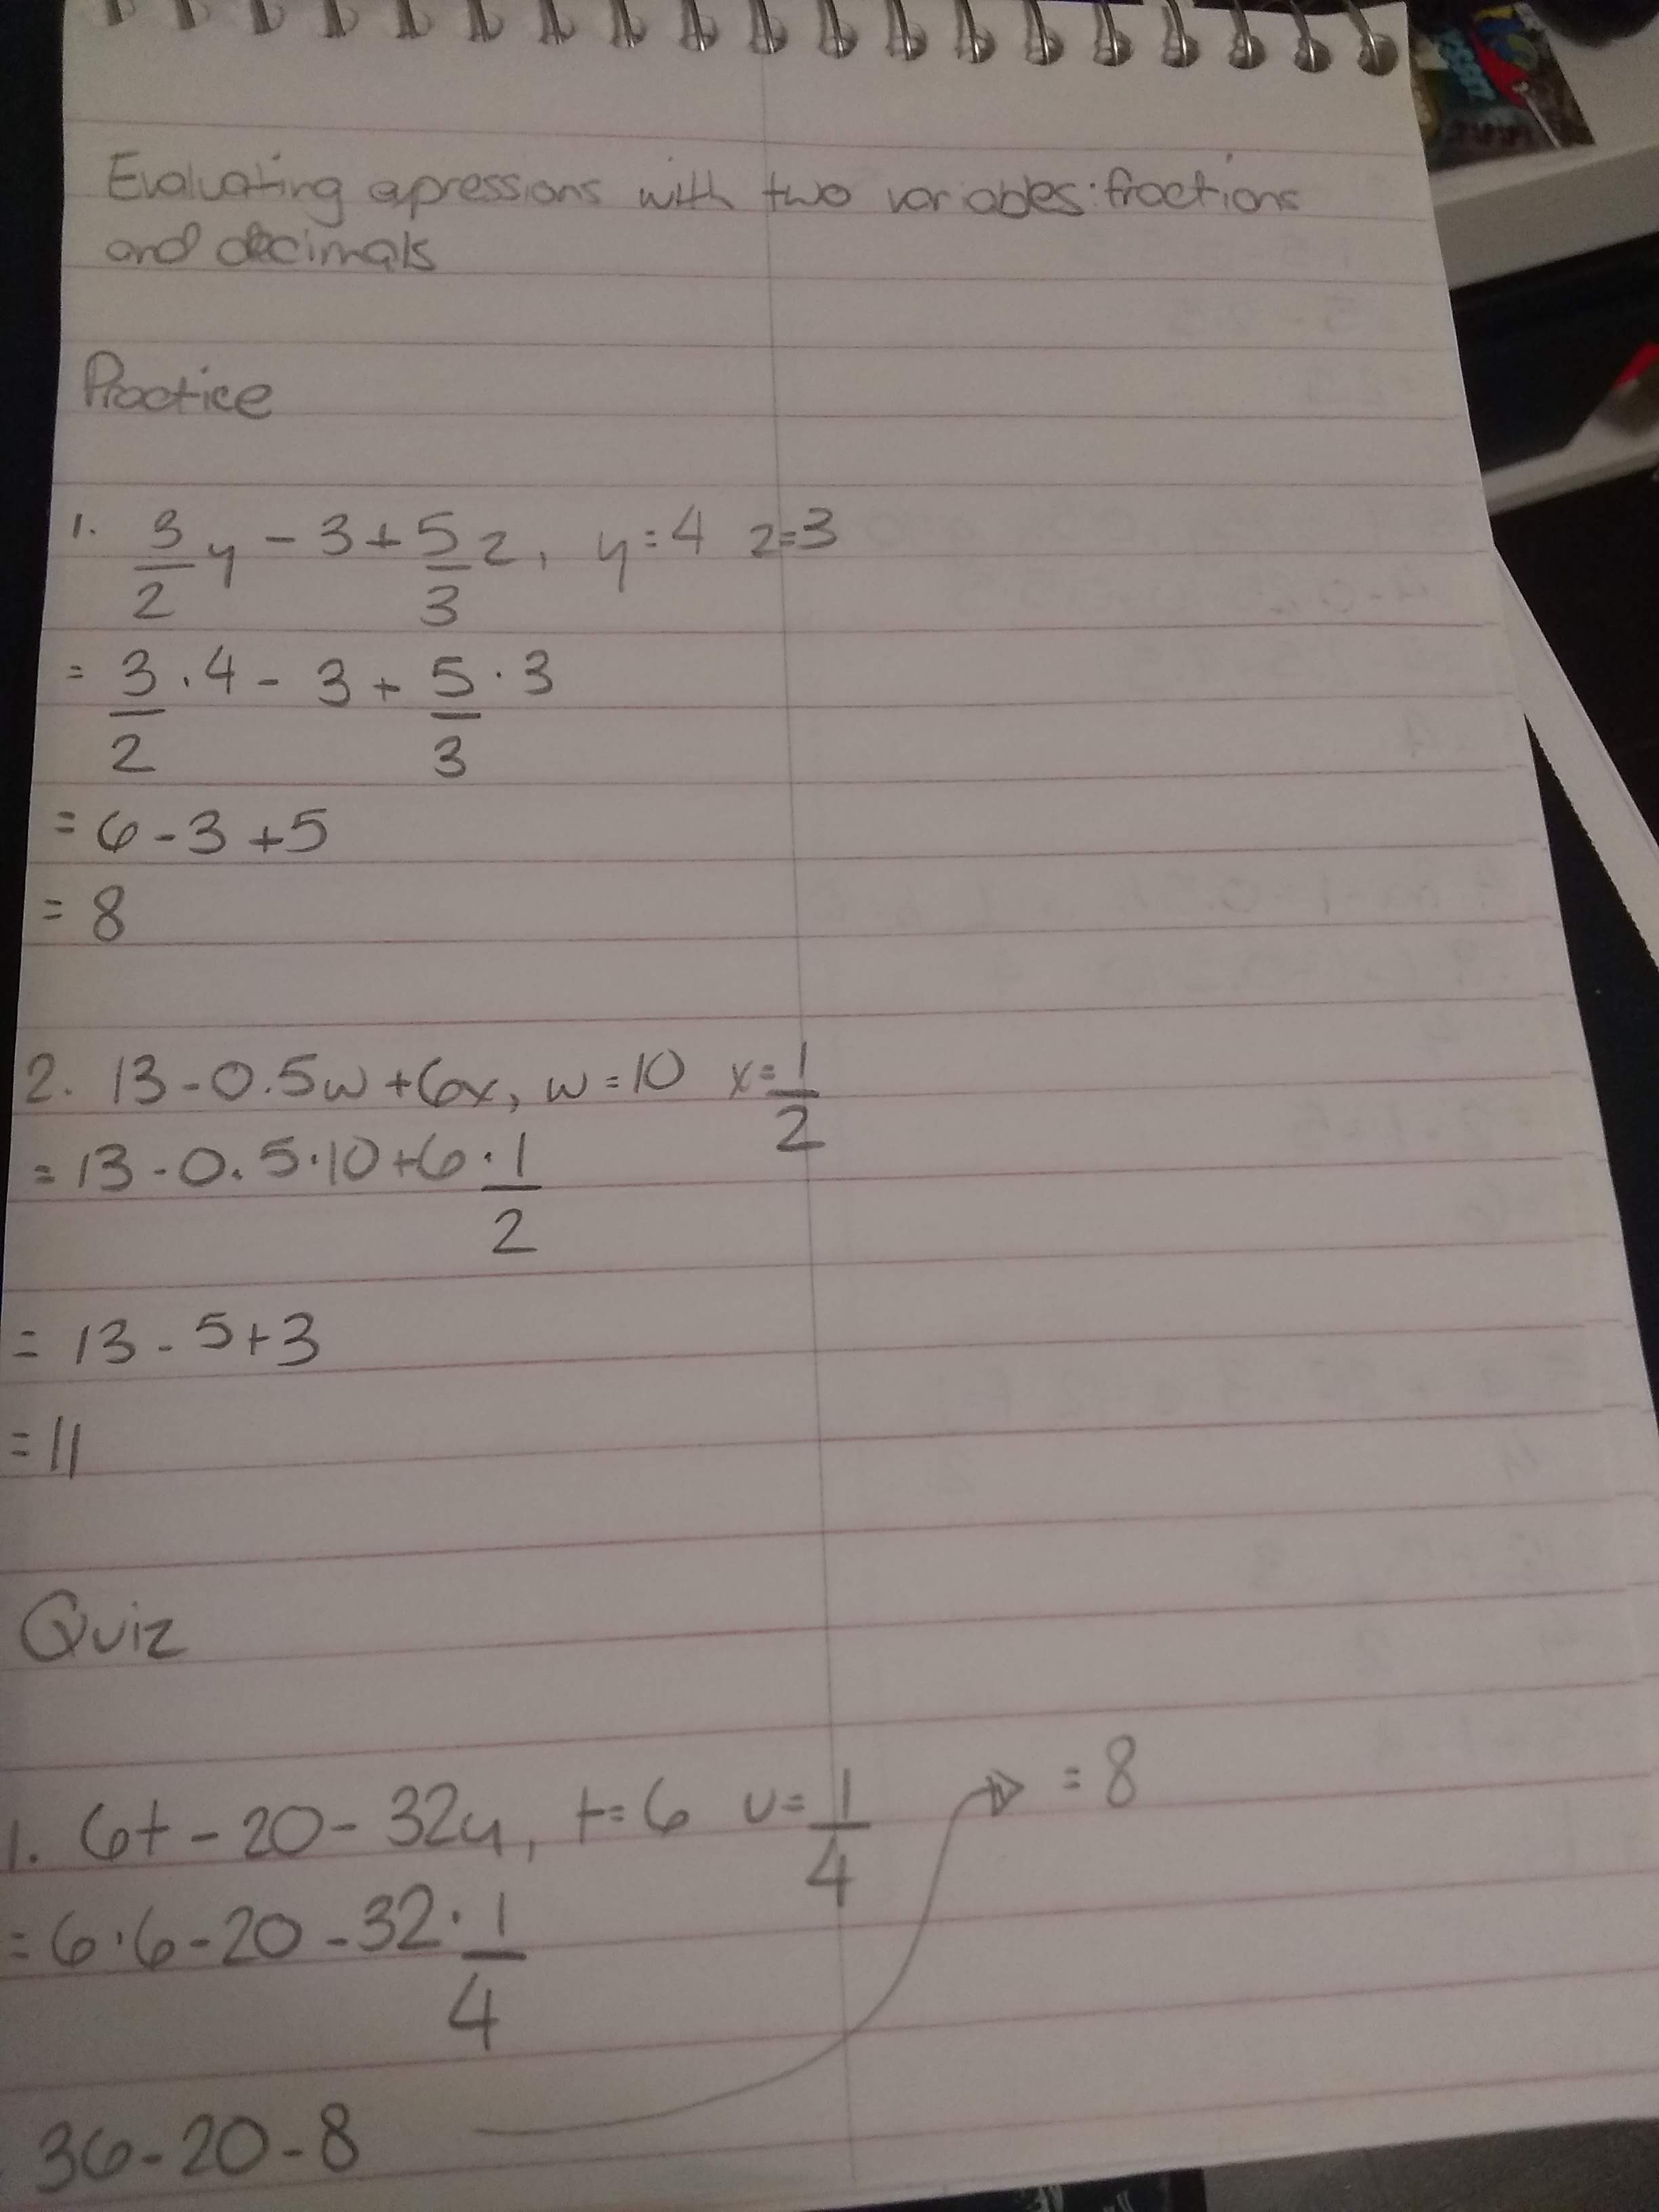 Evaluating apressions with two variables: fractions
and decimals
Practice
1. 3/2 y - 3 + 5/3 z, y = 4 z = 3
= 3/2 · 4 - 3 + 5/3 · 3
= 6 - 3 + 5
= 8
2. 13 - 0.5w + 6x, w = 10 x = 1/2
= 13 - 0.5 · 10 + 6 · 1/2
= 13 - 5 + 3
= 11
Quiz
1. 6t - 20 - 32u, t = 6 u = 1/4
= 6 · 6 - 20 - 32 · 1/4
36 - 20 - 8
= 8